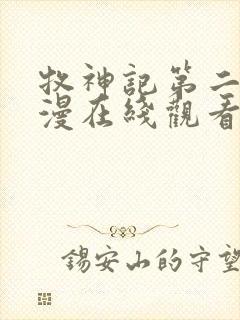 牧神記第二
漫在綫觀看
錫安山的守望